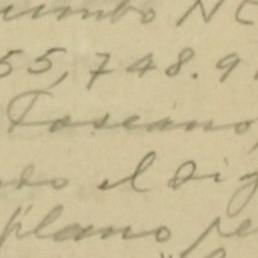 umbo N
55,748.9
Toscano,
do el sig
plano pe